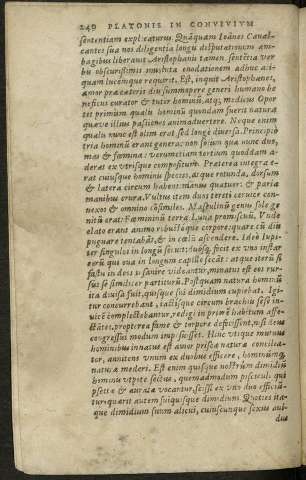 240 PLATONIS IN CONVIVIVM
sententiam explicaturus. Quāquam Ioānes Caualcantes
sua nos diligentia longis disputationum ambagibus
liberauit Aristophanis tamen sentētia verbis
obscurissimis inuoluta enodationem adhuc aliquam
lucémque requirit. Est, inquit Aristophanes,
amor præ cæteris diis summopere generi humano beneficus
curator & tutor hominū, atq; medicus. Oportet
primum qualis hominū quondam fuerit natura
quæve illius passiones animaduertere. Neque enim
qualis nunc est olim erat sed longè diuersa. Principio
tria hominū erant genera: non solum quæ nunc duo,
mas & fœmina, verumetiam tertium quoddam
ex vtrisque compositum. Præterea integra erat
cuiusque hominis species, atque rotunda, dorsum
& latera circum habens: manus quatuor: & paria
manibus crura. Vultus item duos tereti ceruice connexos
& omnino cōsimiles. Masculinū genus sole genitū
erat: Fœmininū terra. Luna promiscuū. Vnde
elato erant animo robustóque corpore: quare cū diis
pugnare tentabāt, & in cœlū ascendere. Ideo Iupiter
singulos in longū secuit: duósq; fecit ex vno instar
eorū qui oua in longum capillo secāt: atque iterū si
fastu in deos sæuire videantur, minatus est eos rursus
se similiter partiturū. Postquam natura hominū
ita diuisa fuit, quisque sui dimidium cupiebat. Igitur
concurrebant, iactisque circum brachiis sese inuicē
complectobantur, redigi in priorē habitum affectātes,
proptereà fame & torpore defecissent, nisi deus
congressui modum imposuisset. Hinc vtique mutuus
hominibus innatus est amor priscæ natura conciliator,
annitens vnum ex duobus efficere, hominumq;
naturæ mederi. Est enim quisque nostrūm dimidiū
hominis vtpote sectus, quemadmodum pisciculi qui
psettæ & auratæ vocantur, scissi ex vno duo efficiūtur:
quærit autem suū quisque dimidium. Quoties itaque
dimidium suum alicui, cuiuscunque sexus auidus